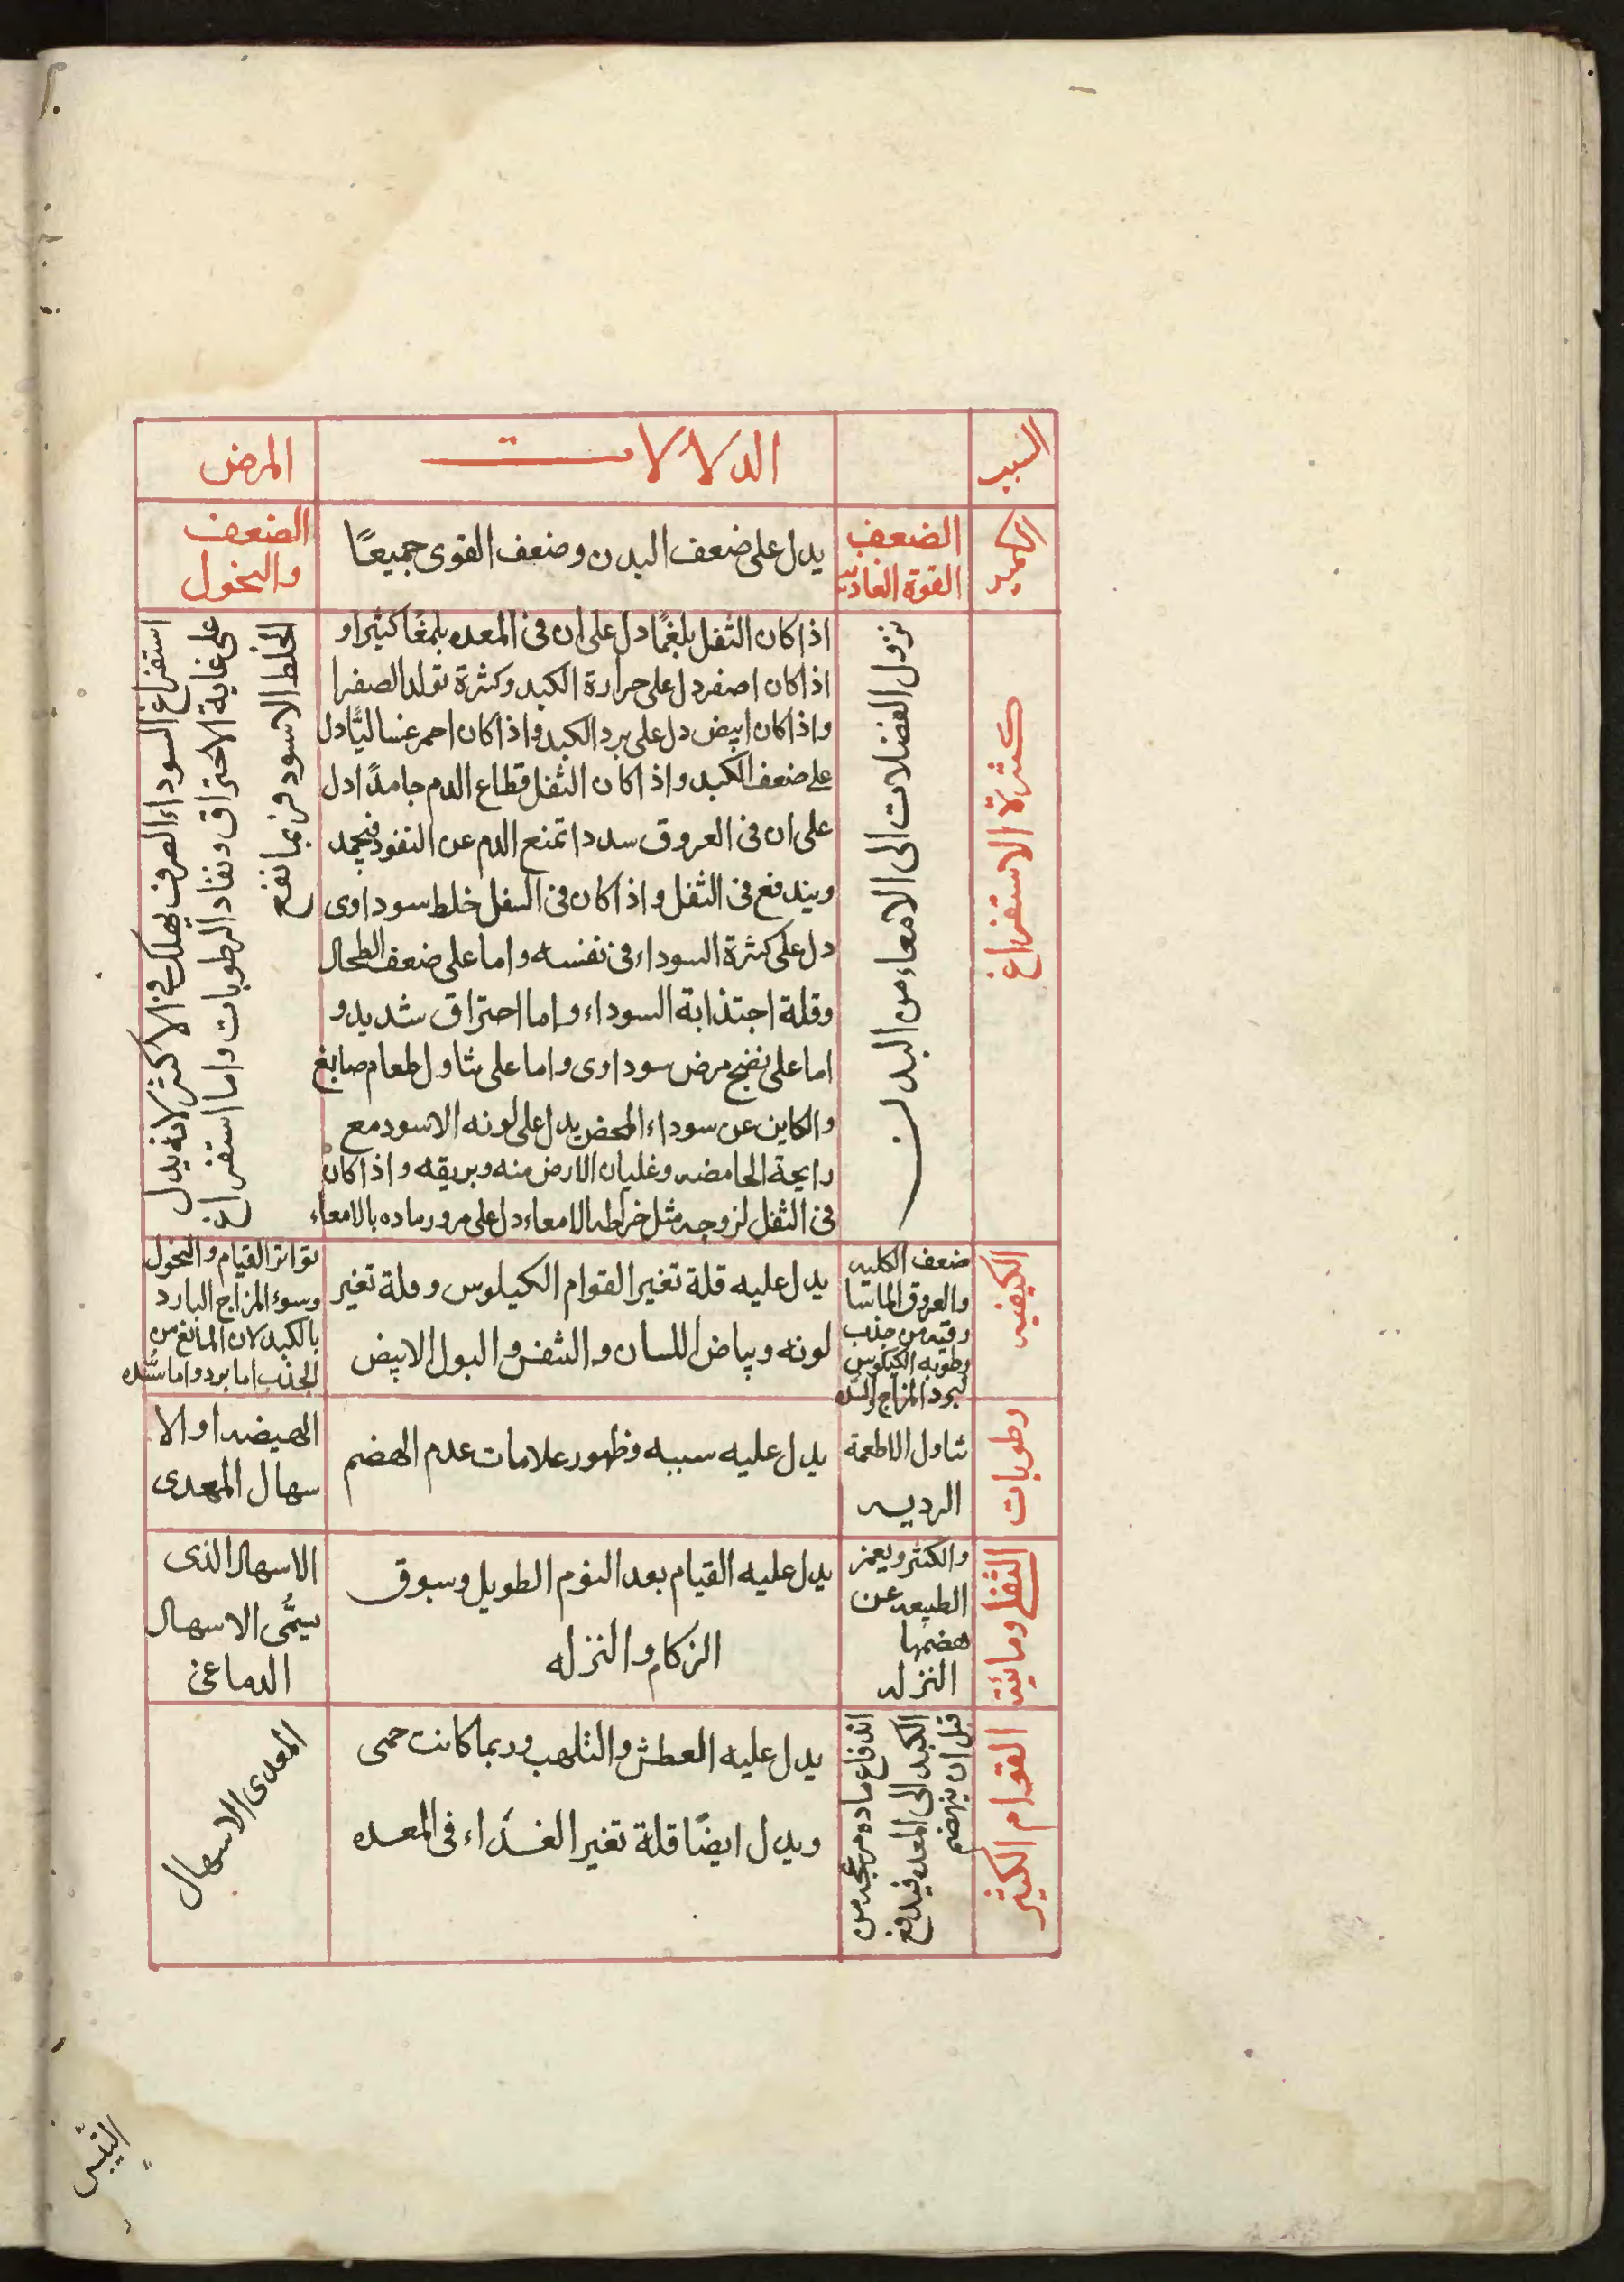 السبب
الدلالات
المرض
الكمية
الضعف
القوة الغاذية
يدل على ضعف البدن وضعف القوى جميعًا
الضعف
والنحول
كثرة الاستفراغ
نزول الفضلات الى الامعاء من البدن
اذا كان الثفل بلغمًا دل على ان فى المعده بلمغًا كثيرا و
اذا كان اصفر دل على حرارة الكبد وكثرة تولد الصفرا
واذا كان ابيض دل على برد الكبد واذا كان احمر غساليًا دل
على ضعف الكبد واذا كان الثفل قطاع الدم جامدًا دل
على ان فى العروق سددا تمنع الدم عن النفوذ فيجمد
ويندفع فى الثفل واذا كان فى السفل خلط سوداوى
دل على كثرة السوداء فى نفسه واما على ضعف الطحال
وقلة اجتذابة السوداء واما احتراق شديد و
اما على نضج مرض سوداوى واما على تناول طعام صابغ
والكاين عن سوداء المحض يدل على لونه الاسود مع
رايحة الحامضه وغليان الارض منه وبريقه واذا كان
فى الثفل لزوجه مثل خراطه الامعاء دل على مرور ماده بالامعاء
استفراغ السوداء الصرف يهلك فى الاكثر لانه يدل
على غاية الاحتراق ونفاد الرطوبات واما استفراغ
الخلط الاسود فربما نفع
الكيفيه
ضعف الكليه
والعروق الماسا
رقيه من جذب
رطوبه الكيلوس
لبرد المزاج والسده
يدل عليه قلة تغير القوام الكيلوس وقلة تغير
لونه وبياض اللسان والشفر والبول الابيض
تواتر القيام والنحول
وسوء المزاج البارد
بالكبد لان المانع من
الجذب اما برد واما سُدّه
رطوبات
تناول الاطعمة
الرديه
يدل عليه سببه وظهور علامات عدم الهضم
الهيضه او الا
سهال المعدى
الثفل ومائية
والكثر ويعجز
الطبيعه عن
هضمها
النزله
يدل عليه القيام بعد النوم الطويل وسبوق
الزكام والنزله
الاسهال الذى
يسمَّى الاسهال
الدماغى
القوام الكثير
اندفاع ماده من
الكبد الى المعده فيدفع
قبل ان ينهضم
يدل عليه العطش والتلهب وربما كانت حمى
ويدل ايضًا قلة تغير الغذاء فى المعده
المعدى الاسهال